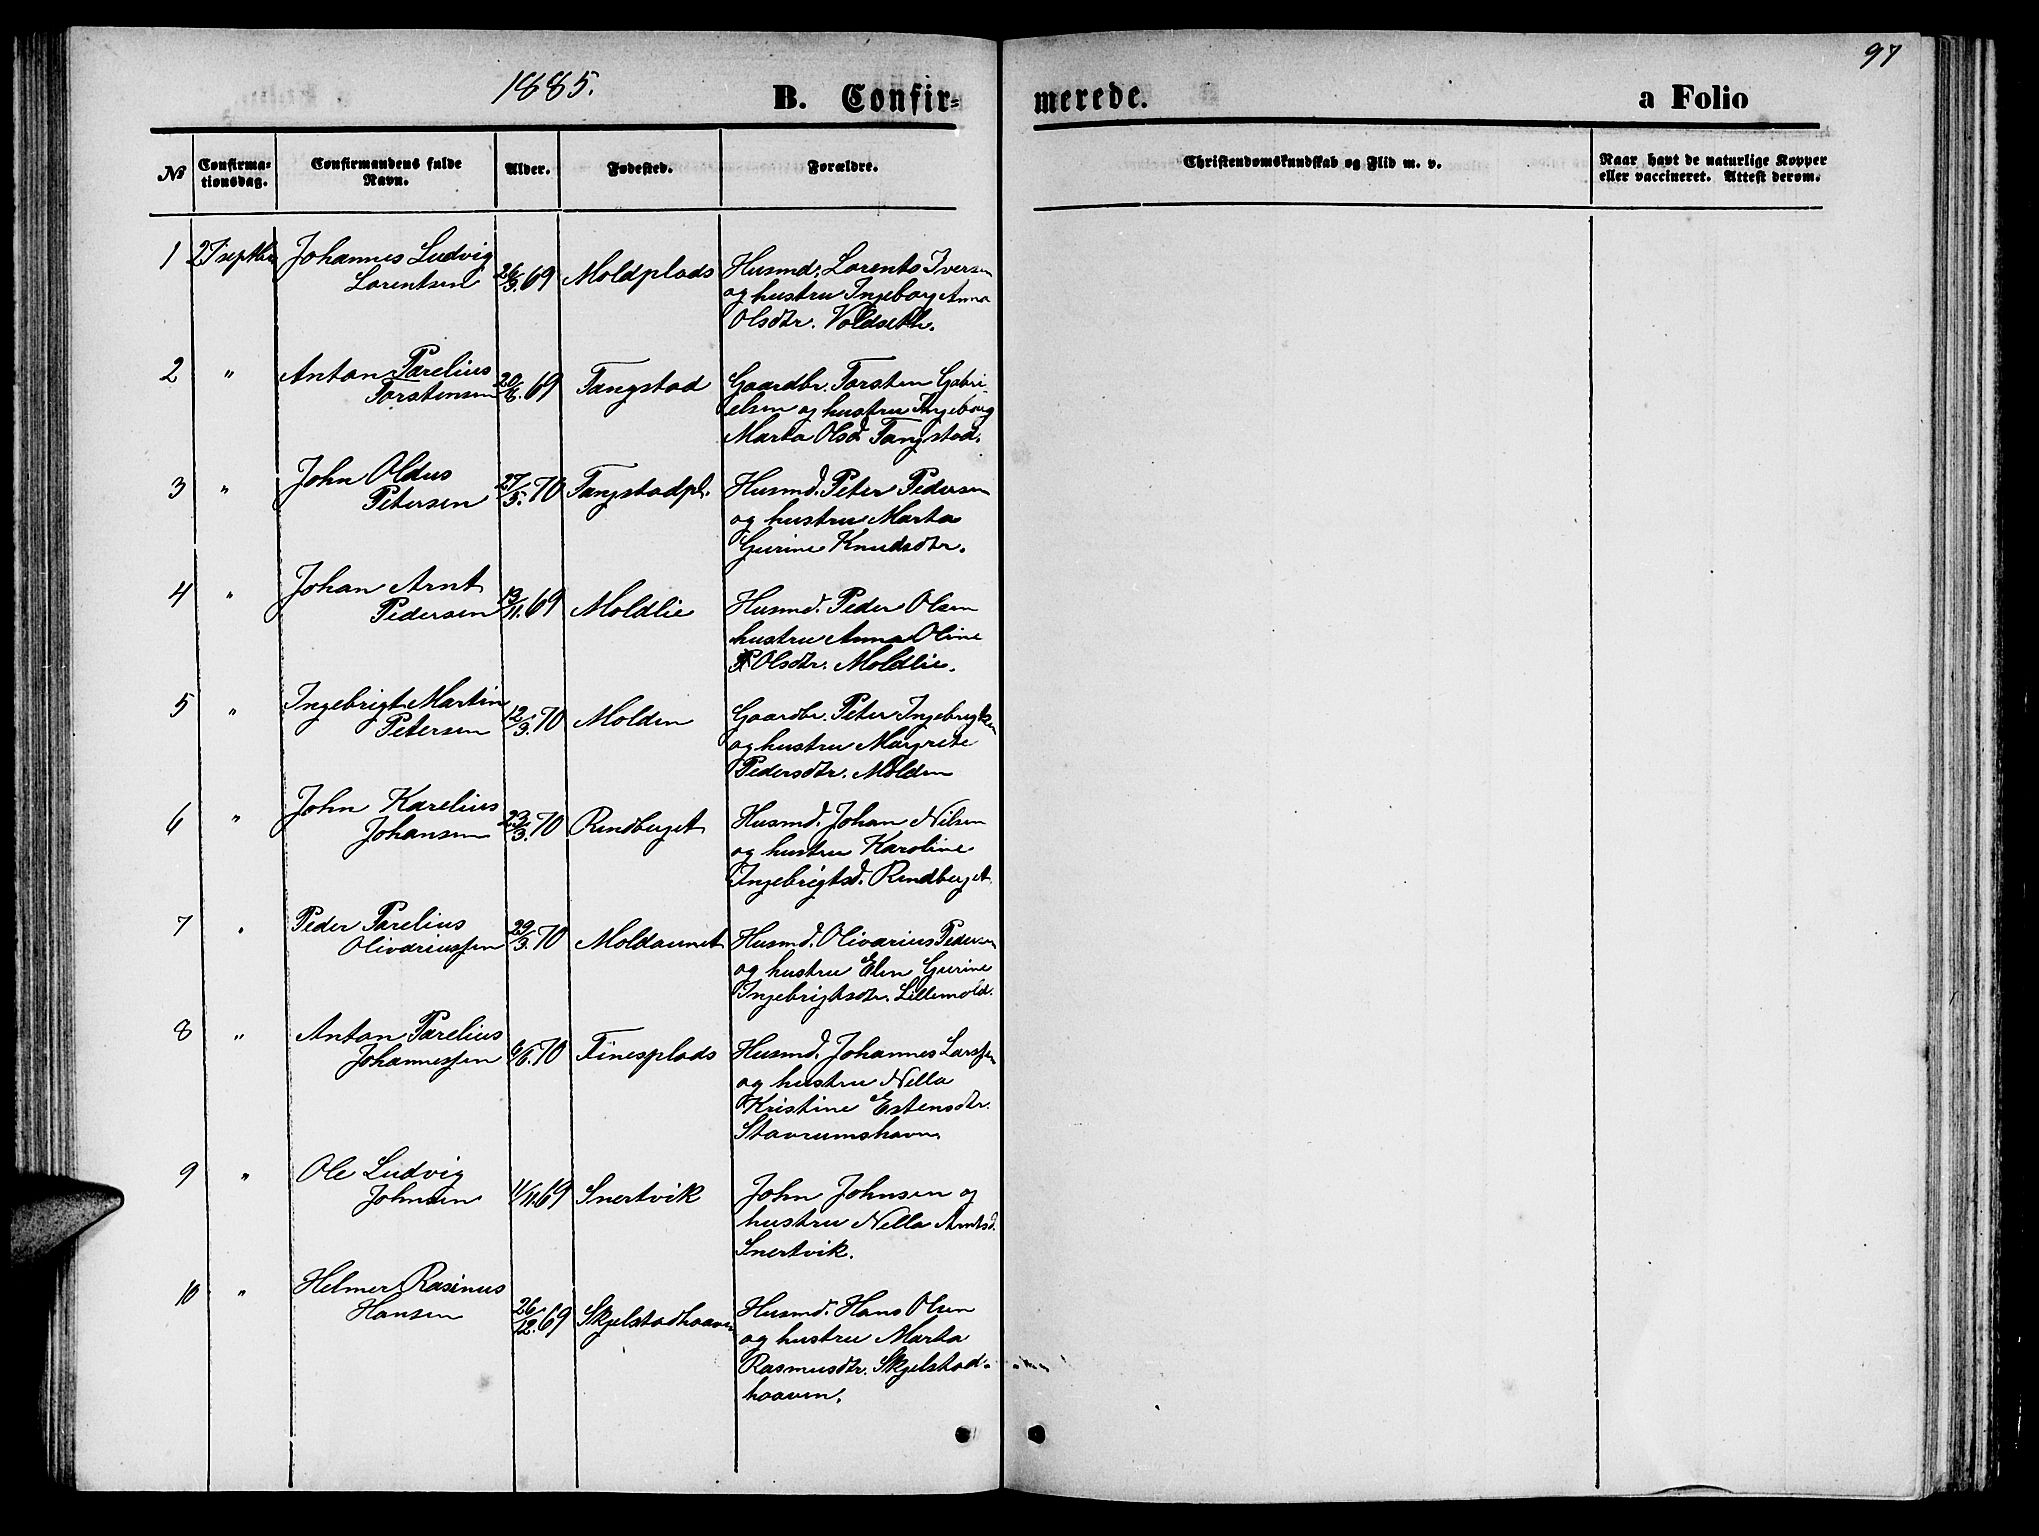 1885.
B. Confir-
merede.
a Folio
97
No
Confirma-
tionsdag.
Confirmandens fulde
Navn.
Alder.
Fødested.
Forældre.
Christendomskundskab og Flid m. v.
Naar havt de naturlige Kopper
eller vaccineret. Attest derom.
1 27 septbr Johannes Ludvig
Lorentsen 26/3.69 Moldplads
Husmd. Lorents Iversen
og hustru Ingeborg Anna
Olsdtr. Voldseth.
2 " Anton Parelius
Torstensen 20/8.69 Tangstad
Gaardbr. Torsten Gabri-
elsen og hustru Ingeborg
Marta Olsd. Tangstad.
3 " John Oldus
Petersen 27/5.70 Tangstadpl.
Husmd. Peter Pedersen
og hustru Marta
Gurine Knudsdtr.
4 " Johan Arnt
Pedersen 13/11.69 Moldlie
Husmd. Peder Olsen
hustru Anna Oline
Olsdtr. Moldlie.
5 " Ingebrigt Martin
Petersen 12/3.70 Molden
Gaardbr. Peter Ingebrigtsen
og hustru Margrete
Pedersdtr. Molden
6 " John Karelius
Johansen 23/3.70 Rindberget
Husmd. Johan Nilsen
og hustru Karoline
Ingebrigtsd. Rindberget
7 " Peder Parelius
Olivariussen 29/3.70 Moldaunet
Husmd. Olivarius Pedersen
og hustru Elen Gurine
Ingebrigtsdtr. Lillemold.
8 " Anton Parelius
Johannessen 6/6.70 Finesplads
Husmd. Johannes Larssen
og hustru Nella
Kristine Estensdtr.
Stavrumshavn.
9 " Ole Ludvig
Johnsen 11/11.69 Snertvik
John Johnsen og
hustru Nella Arntsd.
Snertvik.
10 " Helmer Rasinus
Hansen 26/12.69 Skjelstadhaaven
Husmd. Hans Olsen
og hustru Marta
Rasmusdtr. Skjelstad-
haaven.